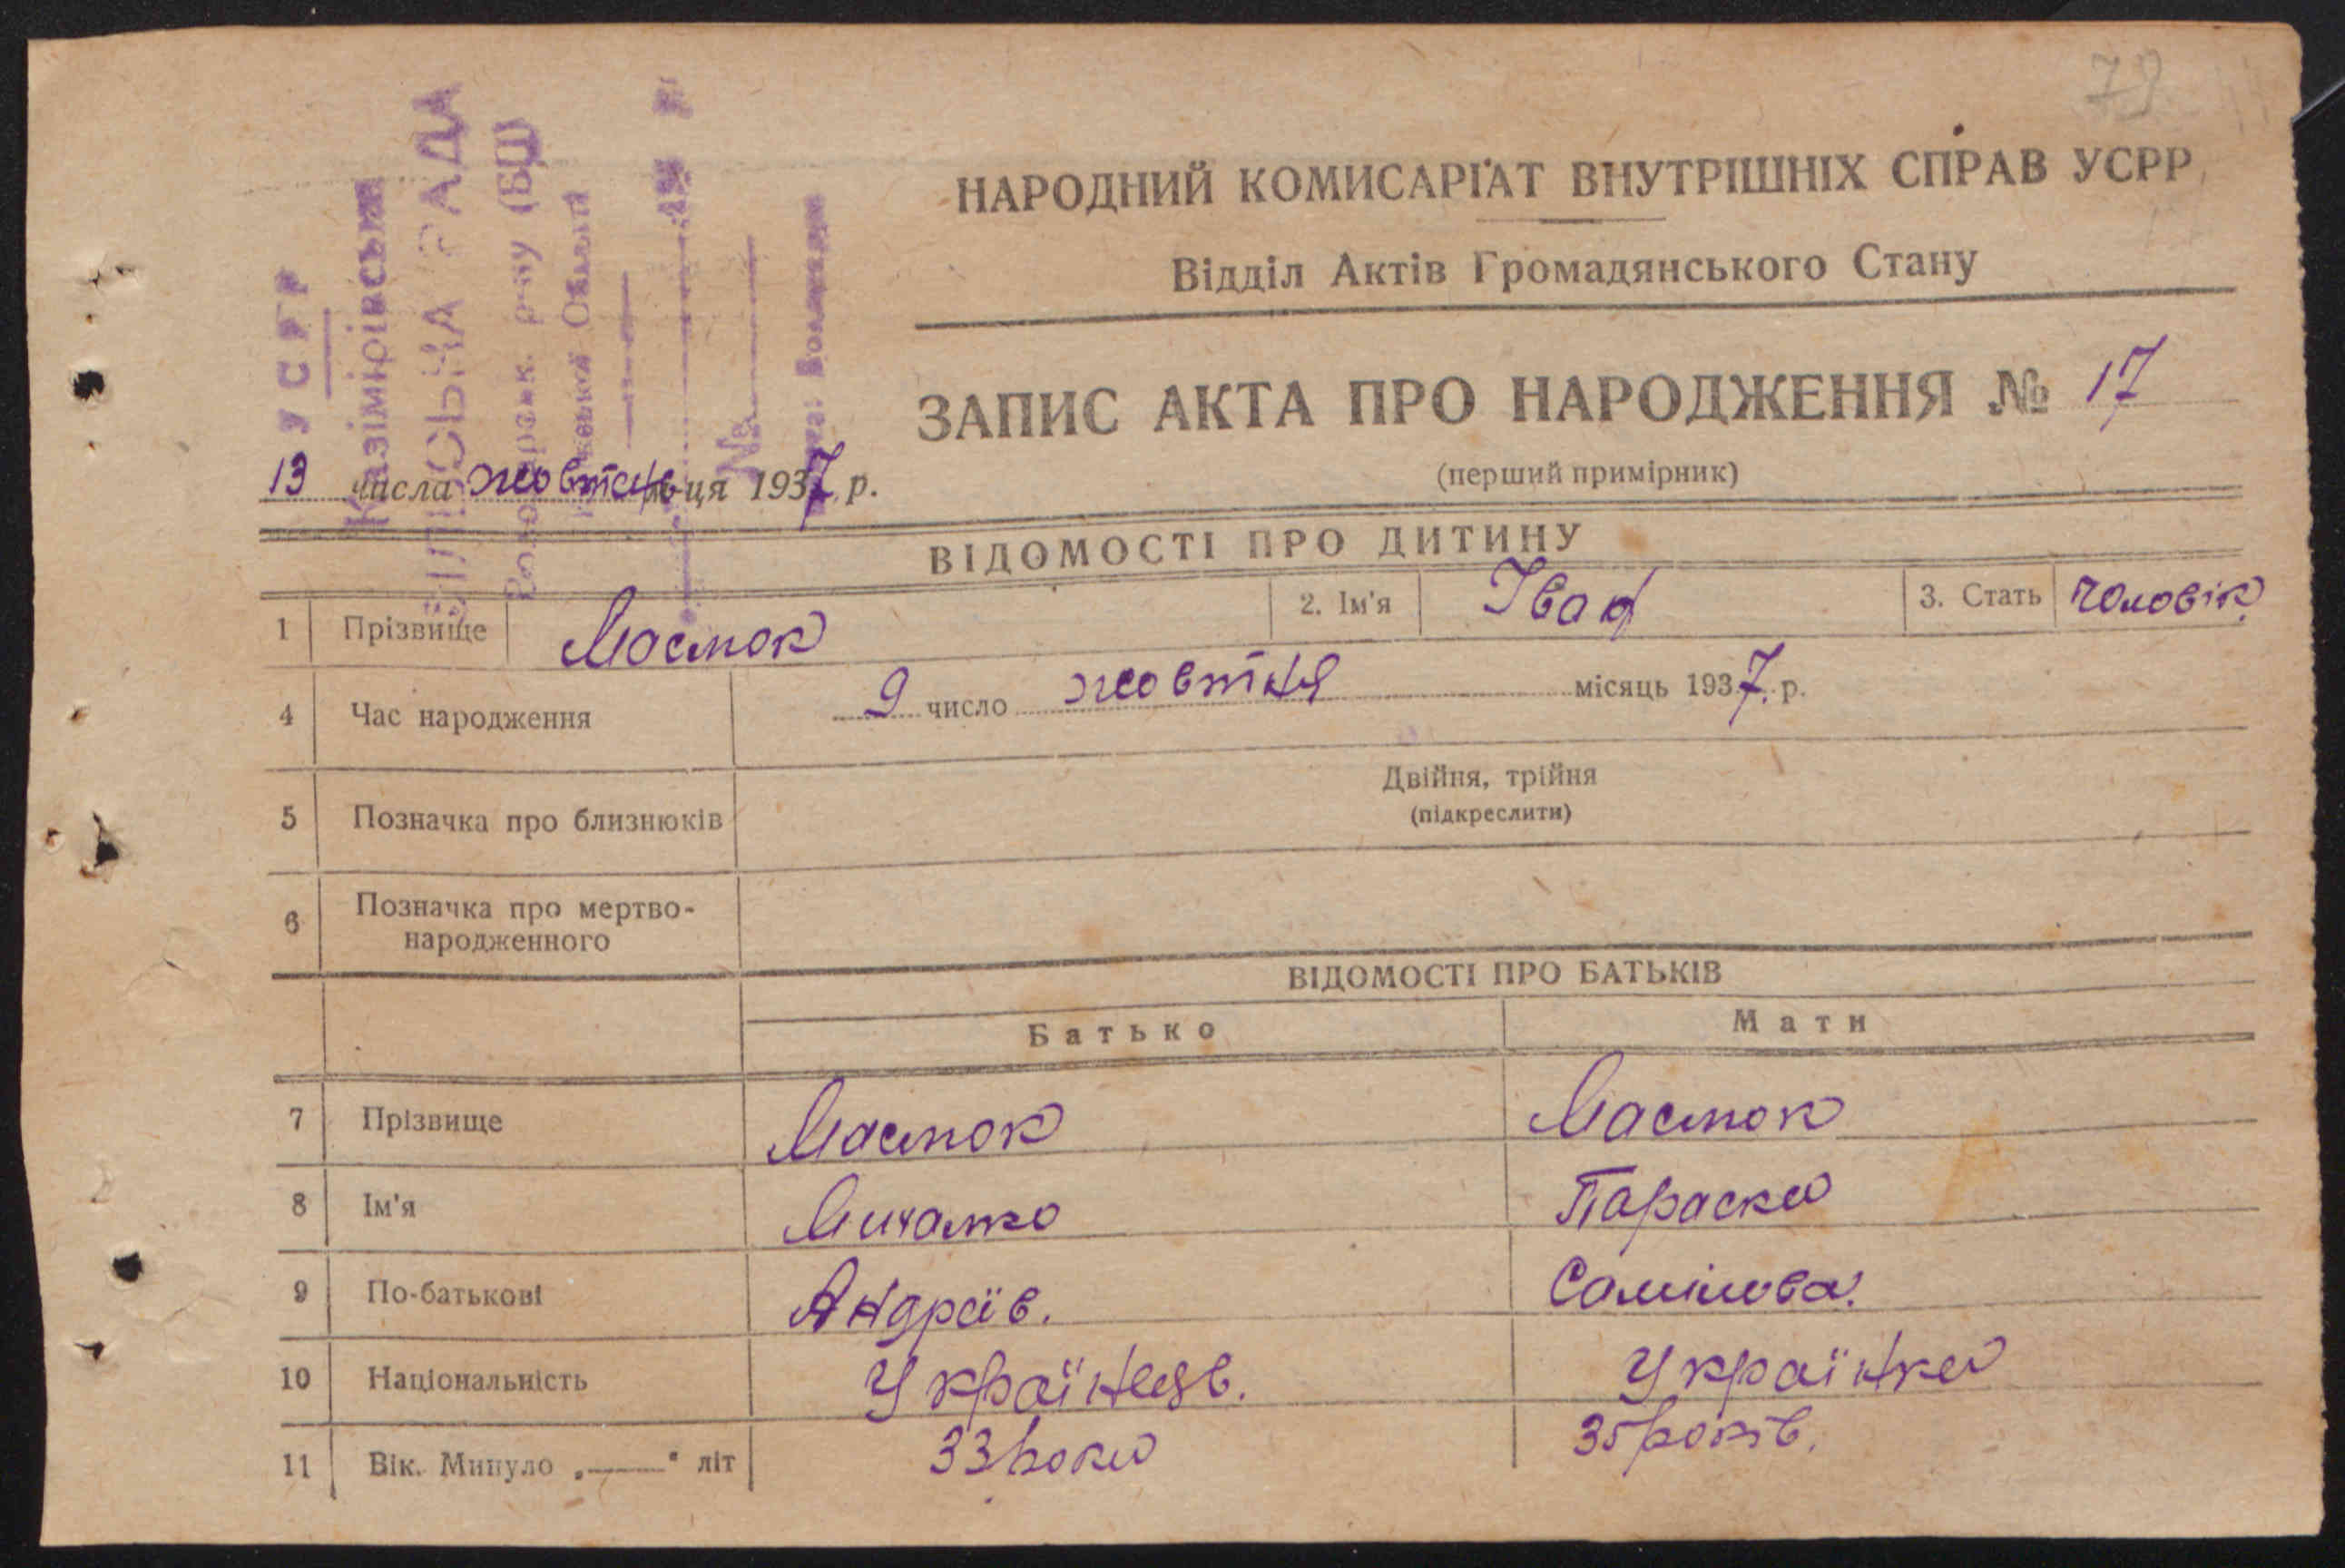 79
УСРР
Казімірівська
СІЛЬСЬКА РАДА
№
НАРОДНИЙ КОМИСАРІАТ ВНУТРІШНІХ СПРАВ УСРР
Відділ Актів Громадянського Стану
ЗАПИС АКТА ПРО НАРОДЖЕННЯ № 17
(перший примірник)
13 числа жовтня ця 1937 р.
ВІДОМОСТІ ПРО ДИТИНУ
1 Прізвище Масток 2. Ім'я Іван 3. Стать чоловік.
4 Час народження 9 число жовтня місяць 1937 р.
5 Позначка про близнюків Двійня, трійня
(підкреслити)
6 Позначка про мертво-
народженного
ВІДОМОСТІ ПРО БАТЬКІВ
Батько Мати
7 Прізвище Масток Масток
8 Ім'я Михалко Параска
9 По-батькові Андріїв.
10 Національність Українець. Українка
11 Вік. Минуло „—" літ 33 роки 35 років.